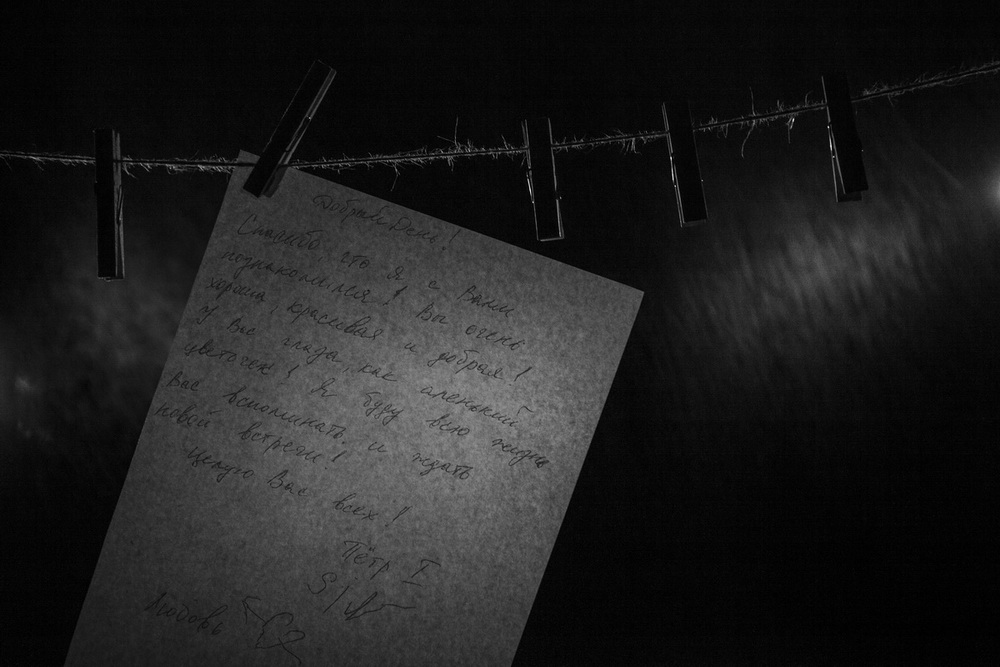 Добрый День!
Спасибо, что я с Вами
познакомился! Вы очень
хороша, красивая и добрая!
У Вас глаза, как аленький
цветочек! Я буду всю жизнь
Вас вспоминать и ждать
новой встречи!
Целую Вас всех!
Пётр I
Любовь